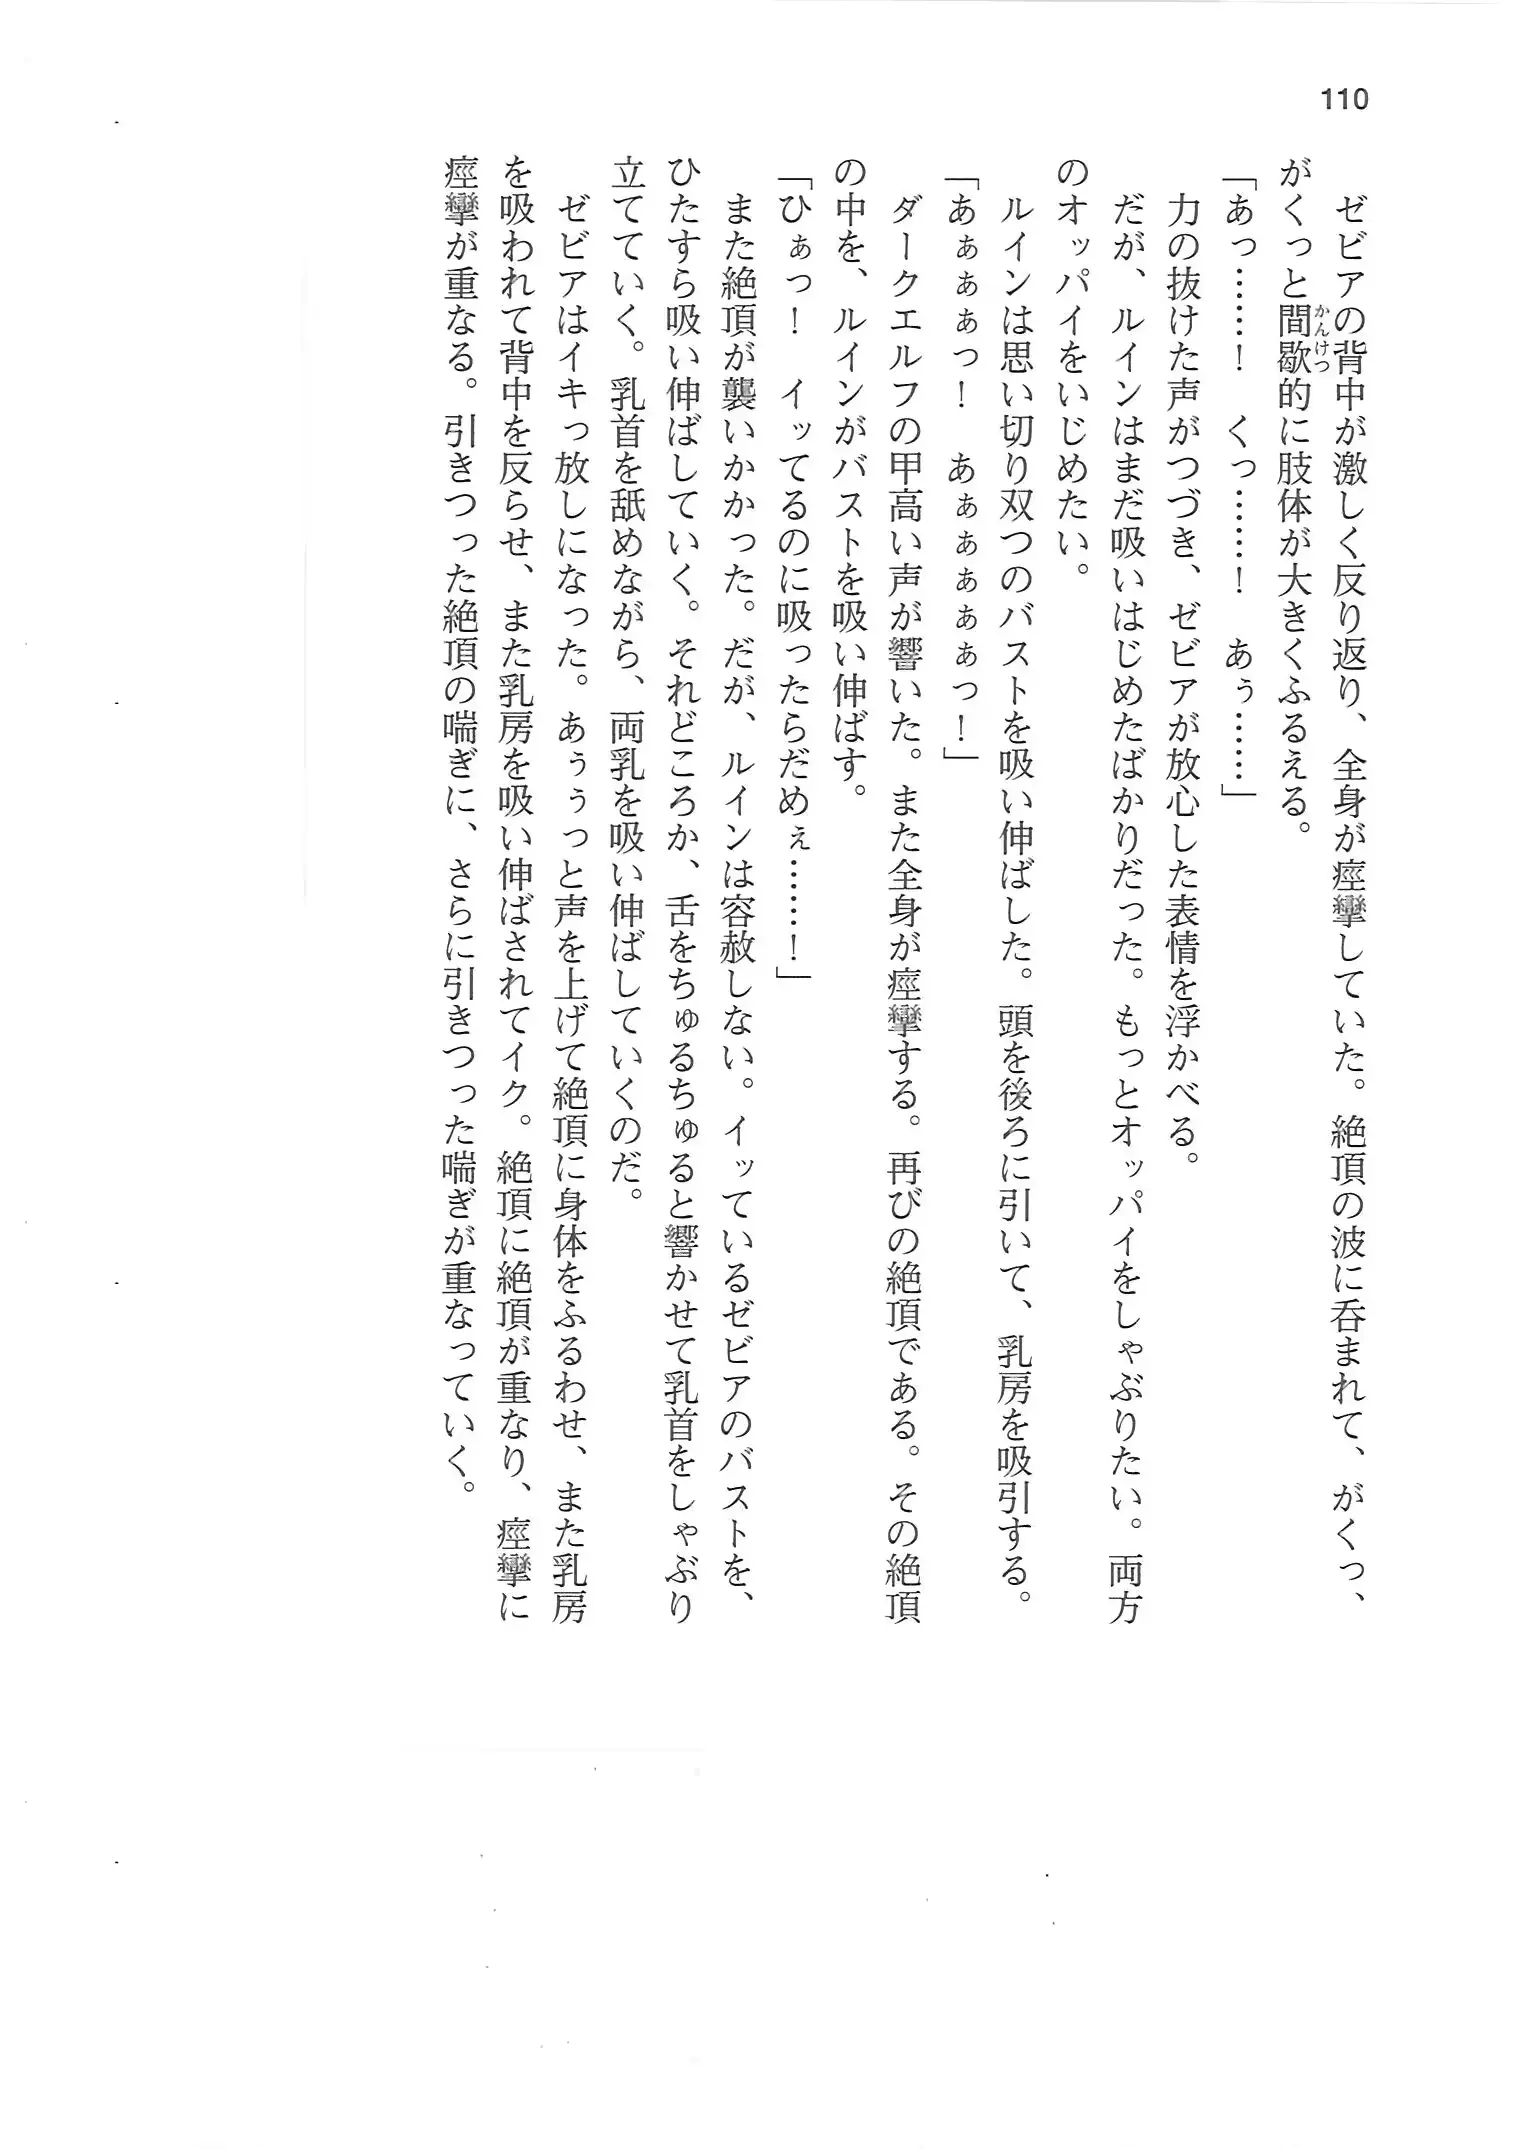 110
ゼビアの背中が激しく反り返り、全身が痙攣していた。絶頂の波に呑まれて、がくっ、
がくっと間歇的に肢体が大きくふるえる。
かんけつ
「あっ……！　くっ……！　あぅ……」
力の抜けた声がつづき、ゼビアが放心した表情を浮かべる。
だが、ルインはまだ吸いはじめたばかりだった。もっとオッパイをしゃぶりたい。両方
のオッパイをいじめたい。
ルインは思い切り双つのバストを吸い伸ばした。頭を後ろに引いて、乳房を吸引する。
「あぁぁぁっ！　あぁぁぁぁぁっ！」
ダークエルフの甲高い声が響いた。また全身が痙攣する。再びの絶頂である。その絶頂
の中を、ルインがバストを吸い伸ばす。
「ひぁっ！　イッてるのに吸ったらだめぇ……！」
また絶頂が襲いかかった。だが、ルインは容赦しない。イッているゼビアのバストを、
ひたすら吸い伸ばしていく。それどころか、舌をちゅるちゅると響かせて乳首をしゃぶり
立てていく。乳首を舐めながら、両乳を吸い伸ばしていくのだ。
ゼビアはイキっ放しになった。あぅぅっと声を上げて絶頂に身体をふるわせ、また乳房
を吸われて背中を反らせ、また乳房を吸い伸ばされてイク。絶頂に絶頂が重なり、痙攣に
痙攣が重なる。引きつった絶頂の喘ぎに、さらに引きつった喘ぎが重なっていく。